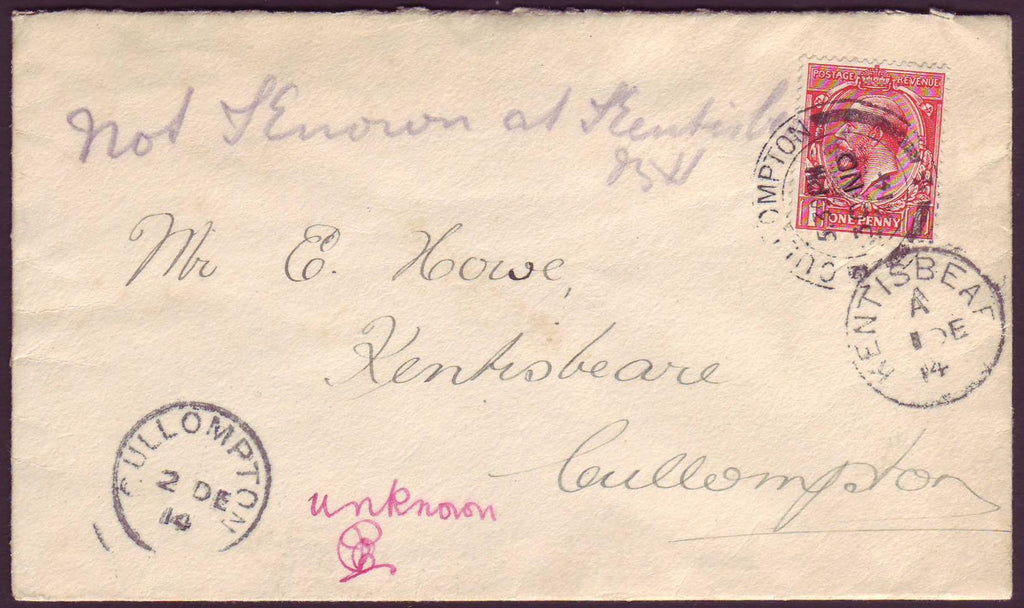 POSTAGE REVENUE
Not Known at Kentisb
ONE PENNY
CULLOMPTON
NO
14
KENTISBEARE
A
1 DE
14
Mr E. Howe,
Kentisbeare
Cullompton
CULLOMPTON
2 DE
14
unknown